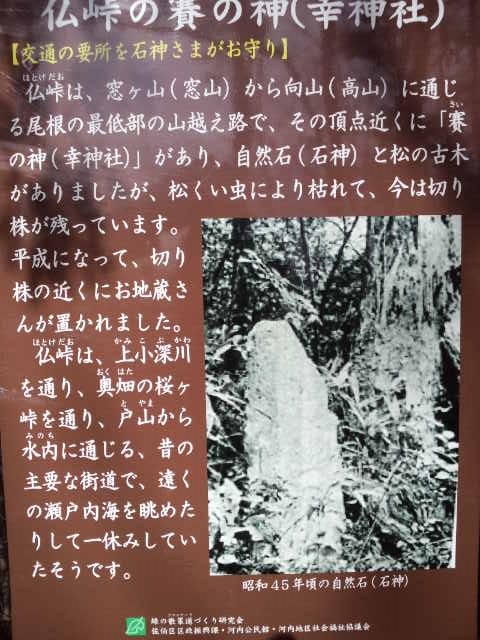 仏峠の賽の神(幸神社)
【交通の要所を石神さまがお守り】
ほとけだお
仏峠は、窓ヶ山(窓山)から向山(高山)に通じ
る尾根の最低部の山越え路で、その頂点近くに「賽
さい
の神(幸神社)」があり、自然石(石神)と松の古木
がありましたが、松くい虫により枯れて、今は切り
株が残っています。
平成になって、切り
株の近くにお地蔵さ
んが置かれました。
ほとけだお かみこぶかわ
仏峠は、上小深川
おくはた
を通り、奥畑の桜ヶ
とやま
峠を通り、戸山から
みのち
水内に通じる、昔の
主要な街道で、遠く
の瀬戸内海を眺めた
りして一休みしてい
たそうです。
昭和45年頃の自然石(石神)
緑の散策道づくり研究会
佐伯区区政振興課・河内公民館・河内地区社会福祉協議会